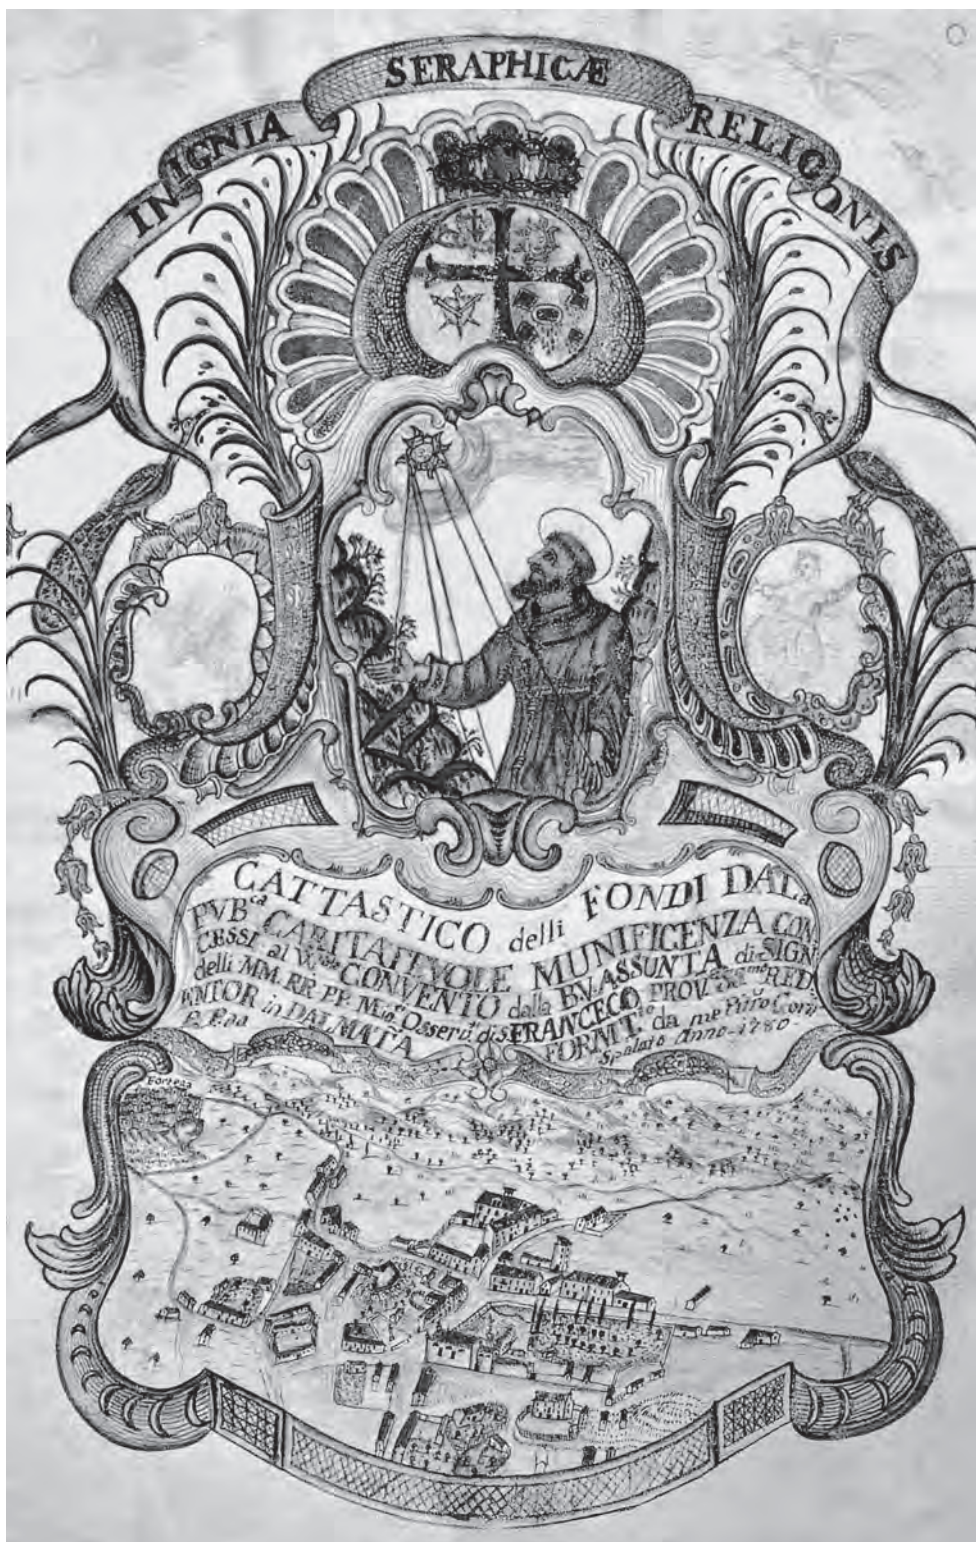 INSIGNIA SERAPHICÆ RELIGIONIS
CATTASTICO delli FONDI DALa
PVB.ca CARITATEVOLE MUNIFICENZA CON
CESSI al CONVENTO della B.V. ASSUNTA di SIGN
delli MM. RR. PP. Osserv. di S. FRANCECO PROV. RED
in DALMATA FORM.T. da me
Spalato Anno 1780
Forteza